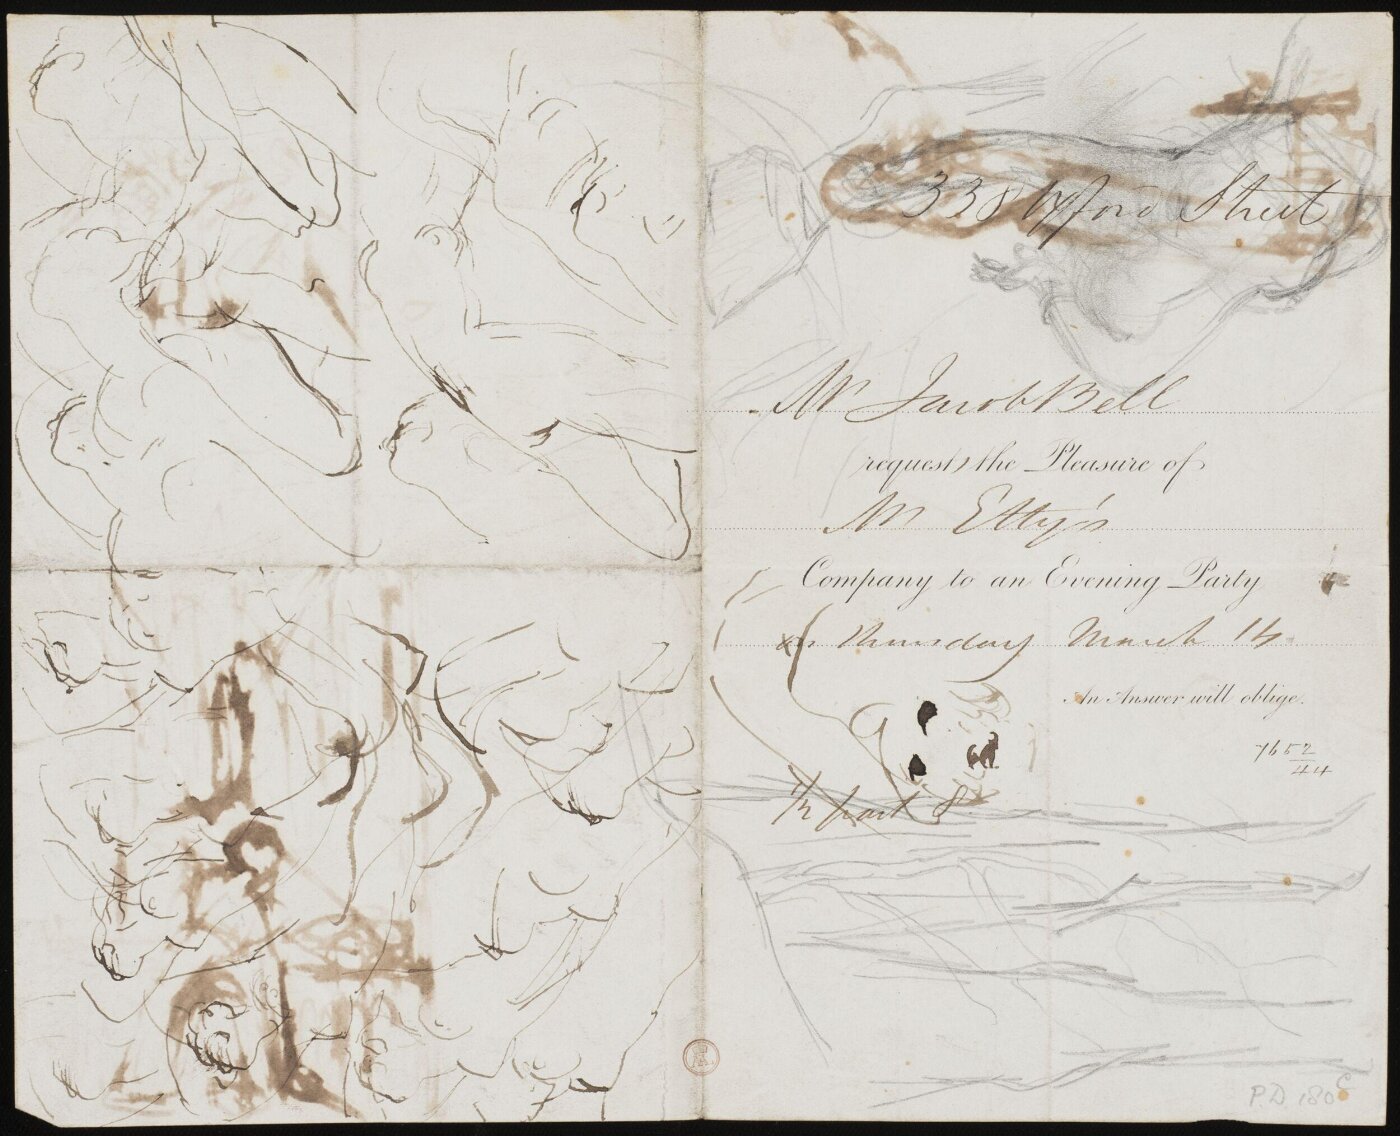 338 Oxford Street
Mr Jacob Bell
request the Pleasure of
Mr Etty's
Company to an Evening Party
on Thursday March 14
An Answer will oblige.
7652
44
1/2 past 8
P.D. 180 C